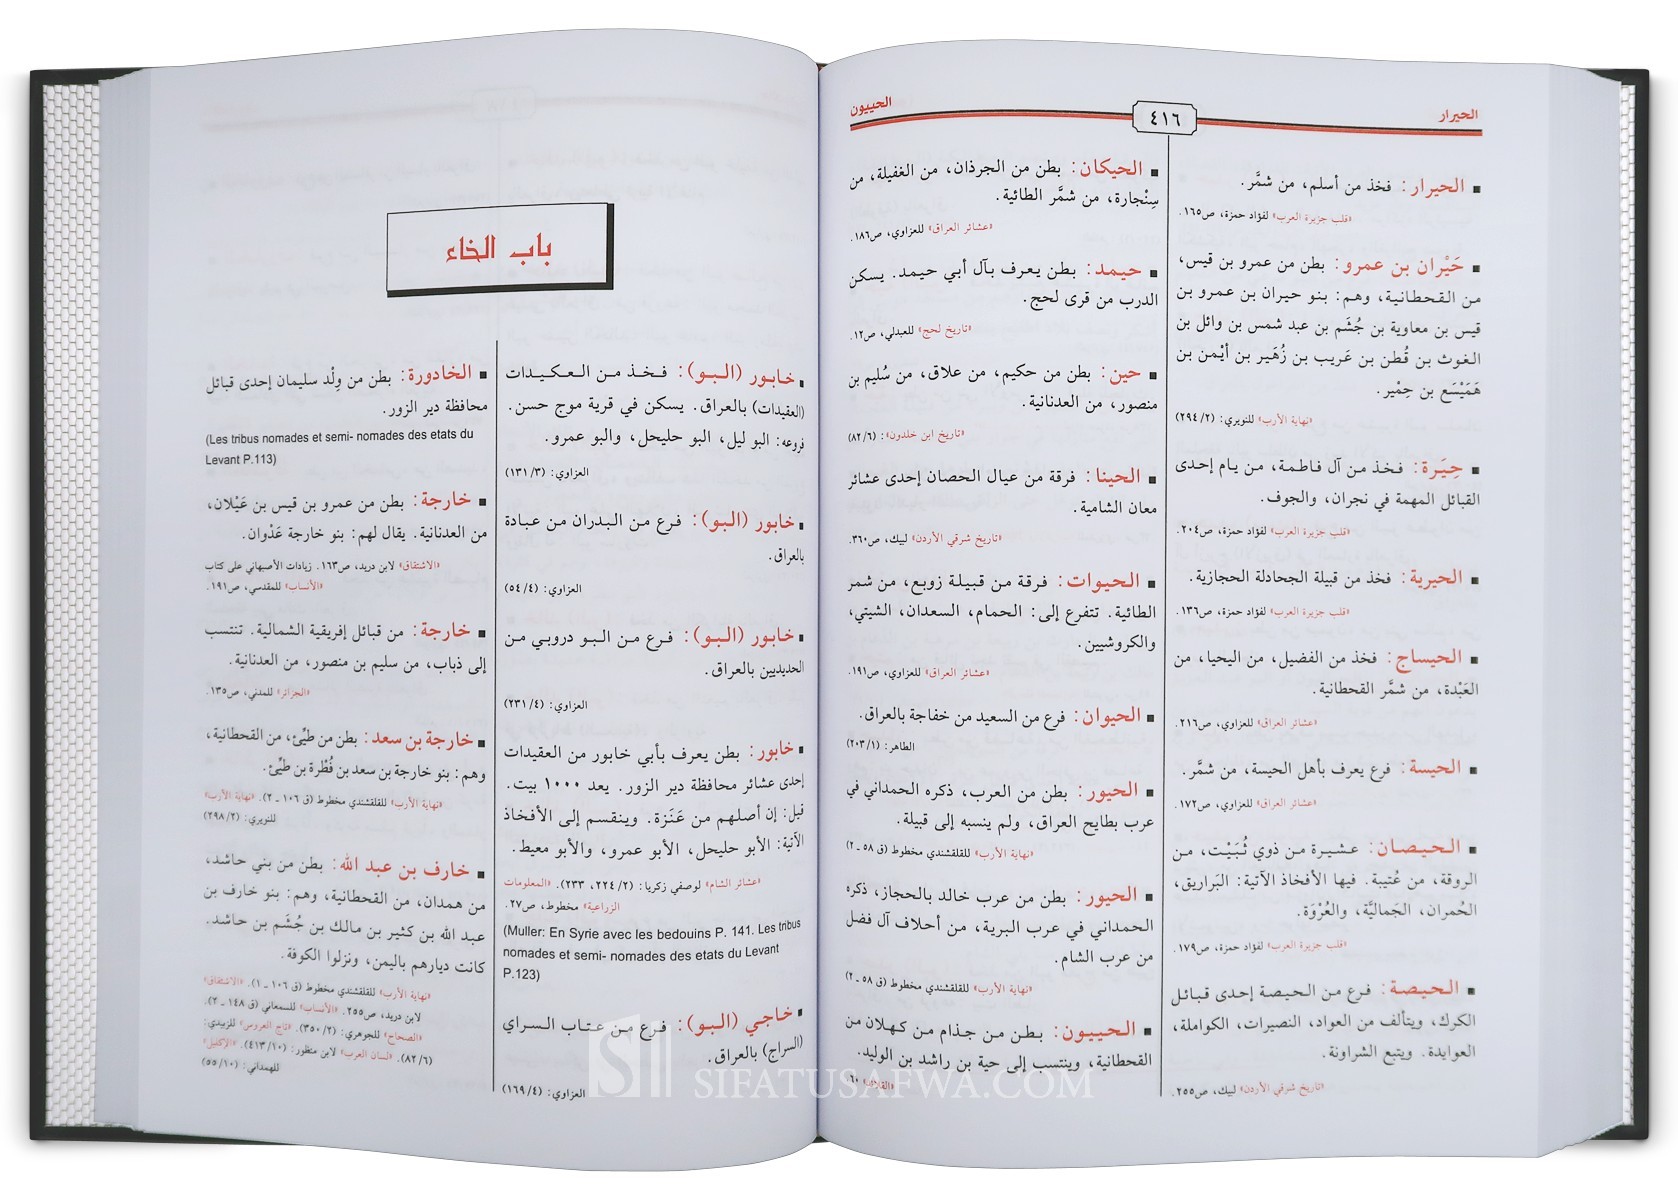 الحيرار
٤١٦
الحييون
▪ الحيرار: فخذ من أسلم، من شمَّر.
«قلب جزيرة العرب» لفؤاد حمزة، ص١٦٥.
▪ حَيْران بن عمرو: بطن من عمرو بن قيس،
من القحطانية، وهم: بنو حيران بن عمرو بن
قيس بن معاوية بن جُشَم بن عبد شمس بن وائل بن
الغوث بن قُطن بن عَريب بن زُهَير بن أيْمن بن
هَمَيْسَع بن حِمْير.
«نهاية الأرب» للنويري: (٢/ ٢٩٤)
▪ حِيَرَة: فخذ من آل فاطمة، من يام إحدى
القبائل المهمة في نجران، والجوف.
«قلب جزيرة العرب» لفؤاد حمزة، ص٢٠٤.
▪ الحيرية: فخذ من قبيلة الجحادلة الحجازية.
«قلب جزيرة العرب» لفؤاد حمزة، ص١٣٦.
▪ الحيساج: فخذ من الفضيل، من اليحيا، من
العَبْدة، من شمَّر القحطانية.
«عشائر العراق» للعزاوي، ص٢١٦.
▪ الحيسة: فرع يعرف بأهل الحيسة، من شمَّر.
«عشائر العراق» للعزاوي، ص١٧٢.
▪ الحيصان: عشيرة من ذوي ثُبَيْت، من
الروقة، من عُتيبة. فيها الأفخاذ الآتية: البَراريق،
الحُمران، الجَماليَّة، والعُرْوَة.
«قلب جزيرة العرب» لفؤاد حمزة، ص١٧٩.
▪ الحيصة: فرع من الحيصة إحدى قبائل
الكرك، ويتألف من العواد، النصيرات، الكواملة،
العوايدة. ويتبع الشراونة.
«تاريخ شرقي الأردن» لبيك، ص٢٥٥.
▪ الحيكان: بطن من الجرذان، من الغفيلة، من
سِنْجارة، من شمَّر الطائية.
«عشائر العراق» للعزاوي، ص١٨٦.
▪ حيمد: بطن يعرف بآل أبي حيمد. يسكن
الدرب من قرى لحج.
«تاريخ لحج» للعبدلي، ص١٢.
▪ حين: بطن من حكيم، من علاق، من سُليم بن
منصور، من العدنانية.
«تاريخ ابن خلدون»: (٦/ ٨٢)
▪ الحينا: فرقة من عيال الحصان إحدى عشائر
معان الشامية.
«تاريخ شرقي الأردن» لبيك، ص٣٦٠.
▪ الحيوات: فرقة من قبيلة زوبع، من شمر
الطائية. تتفرع إلى: الحمام، السعدان، الشيتي،
والكروشيين.
«عشائر العراق» للعزاوي، ص١٩١.
▪ الحيوان: فرع من السعيد من خفاجة بالعراق.
الطاهر: (١/ ٢٠٣)
▪ الحيور: بطن من العرب، ذكره الحمداني في
عرب بطايح العراق، ولم ينسبه إلى قبيلة.
«نهاية الأرب» للقلقشندي مخطوط (ق ٥٨ ـ ٢)
▪ الحيور: بطن من عرب خالد بالحجاز، ذكره
الحمداني في عرب البرية، من أحلاف آل فضل
من عرب الشام.
«نهاية الأرب» للقلقشندي مخطوط (ق ٥٨ ـ ٢)
▪ الحييون: بطن من جذام من كهلان من
القحطانية، وينتسب إلى حية بن راشد بن الوليد.
باب الخاء
▪ خابور (البو): فخذ من العكيدات
(العقيدات) بالعراق. يسكن في قرية موج حسن.
فروعه: البو ليل، البو حليحل، والبو عمرو.
العزاوي: (٣/ ١٣١)
▪ خابور (البو): فرع من البدران من عبادة
بالعراق.
العزاوي: (٤/ ٥٤)
▪ خابور (البو): فرع من البو دروبي من
الحديديين بالعراق.
العزاوي: (٤/ ٢٣١)
▪ خابور: بطن يعرف بأبي خابور من العقيدات
إحدى عشائر محافظة دير الزور. يعد ١٠٠٠ بيت.
قيل: إن أصلهم من عَنَزة. وينقسم إلى الأفخاذ
الآتية: الأبو حليحل، الأبو عمرو، والأبو معيط.
«عشائر الشام» لوصفي زكريا: (٢/ ٢٢٤، ٢٣٣). «المعلومات
الزراعية» مخطوط، ص٢٧.
(Muller: En Syrie avec les bedouins P. 141. Les tribus
nomades et semi- nomades des etats du Levant
P.123)
▪ خاجي (البو): فرع من عتاب السراي
(السراج) بالعراق.
العزاوي: (٤/ ١٦٩)
▪ الخادورة: بطن من وِلد سليمان إحدى قبائل
محافظة دير الزور.
(Les tribus nomades et semi- nomades des etats du
Levant P.113)
▪ خارجة: بطن من عمرو بن قيس بن عَيْلان،
من العدنانية. يقال لهم: بنو خارجة عَدْوان.
«الاشتقاق» لابن دريد، ص١٦٣. زيادات الأصبهاني على كتاب
«الأنساب» للمقدسي، ص١٩١.
▪ خارجة: من قبائل إفريقية الشمالية. تنتسب
إلى ذباب، من سليم بن منصور، من العدنانية.
«الجزائر» للمدني، ص١٣٥.
▪ خارجة بن سعد: بطن من طيِّئ، من القحطانية،
وهم: بنو خارجة بن سعد بن فُطْرة بن طيِّئ.
«نهاية الأرب» للقلقشندي مخطوط (ق ١٠٦ ـ ٢). «نهاية الأرب»
للنويري: (٢/ ٢٩٨)
▪ خارف بن عبد الله: بطن من بني حاشد،
من همدان، من القحطانية، وهم: بنو خارف بن
عبد الله بن كثير بن مالك بن جُشَم بن حاشد.
كانت ديارهم باليمن، ونزلوا الكوفة.
«نهاية الأرب» للقلقشندي مخطوط (ق ١٠٦ ـ ١). «الاشتقاق»
لابن دريد، ص٢٥٥. «الأنساب» للسمعاني (ق ١٤٨ ـ ٢).
«الصحاح» للجوهري: (٢/ ٣٥٠). «تاج العروس» للزبيدي:
(٦/ ٨٢). «لسان العرب» لابن منظور: (١٠/ ٤١٣). «الإكليل»
للهمداني: (١٠/ ٥٥)
SIFATUSAFWA.COM